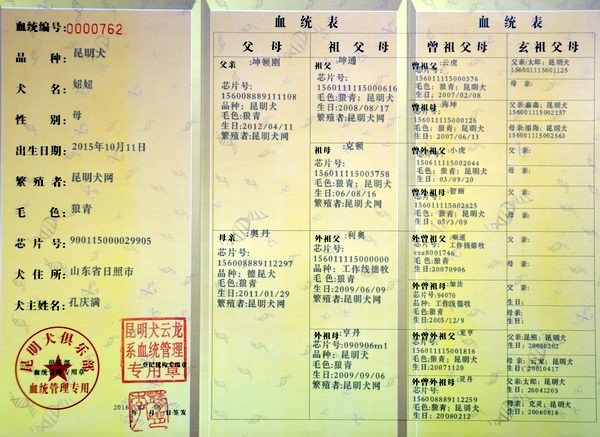 血统编号: 0000762
品 种: 昆明犬
犬 名: 妞妞
性 别: 母
出生日期: 2015年10月11日
繁殖者: 昆明犬网
毛 色: 狼青
芯片号: 900115000029905
犬住所: 山东省日照市
犬主姓名: 孔庆满
昆明犬俱乐部
血统管理专用
昆明犬云龙
系血统管理
专用章
血统表
父母
父亲:坤顿刚
芯片号:
156008889111108
品种: 昆明犬
毛色:狼青
生日:2012/04/11
繁殖者:昆明犬网
母亲:奥丹
芯片号:
156008889112297
品种: 德昆犬
毛色:狼青
生日:2011/01/29
繁殖者:昆明犬网
祖父母
祖父:坤通
芯片号:
1560111115000616
毛色:狼青; 昆明犬
生日:2008/08/17
繁殖者:昆明犬网
祖母:克顿
芯片号:
156011115003758
毛色:狼青; 昆明犬
生日:06/08/16
繁殖者:昆明犬网
外祖父:利奥
芯片号:
156011115000000
品种: 工作线德牧
毛色:狼青
生日:2009/06/09
繁殖者:昆明犬网
外祖母:亨丹
芯片号:090906m1
品种: 工作线德牧
毛色:狼青
生日:2009/09/06
繁殖者:昆明犬网
血统表
曾祖父母
曾祖父:云虎
芯片号:
156011115000376
毛色: 狼青; 昆明犬
生日:2007/02/08
曾祖母:海坤
芯片号:
156011115000126
毛色:狼青; 昆明犬
生日:2007/06/13
曾外祖父:小虎
芯片号:
156011115002044
毛色:狼青; 昆明犬
生日: 03/09/20
曾外祖母:智丽
芯片号:
156011115002625
毛色:狼青; 昆明犬
生日: 05/3/09
外曾祖父:
芯片号: 工作线德牧
csz8001746
毛色:狼青
生日:20070906
外曾祖母:加法
芯片号:94070
品种: 工作线德牧
毛色:狼青
生日:2005/12/9
外曾外祖父:龙亨
芯片号:
156011115001816
毛色:狼青; 昆明犬
生日:20071120
外曾外祖母:灵丹
芯片号:
156008889112259
毛色:狼青; 昆明犬
生日: 20080212
玄祖父母
父亲:太郎; 昆明犬
156001115001125
母亲:
父亲:鑫鑫; 昆明犬
156011115002563
父亲:
母亲:
父亲:
母亲:
父亲:
母亲:
父亲:
生日:
母亲:
生日:
父亲:昆熊; 昆明犬
生日: 20050202
母亲: 云龙; 昆明犬
生日: 20010417
父亲:太郎; 昆明犬
生日: 20041205
母亲: 克灵; 昆明犬
生日: 20060816